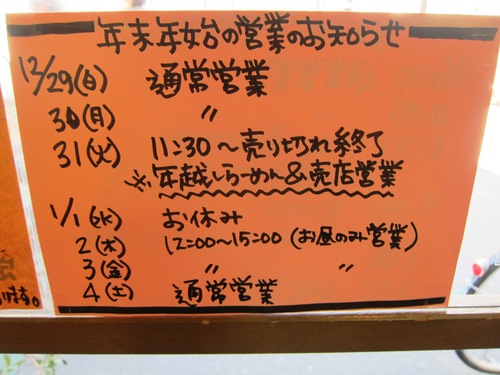 年末年始の営業のお知らせ
12/29(日) 通常営業
30(月) 〃
31(火) 11:30～売り切れ終了
※年越しらーめん&売店営業
1/1(水) お休み
2(木) 12:00～15:00(お昼のみ営業)
3(金) 〃 〃
4(土) 通常営業